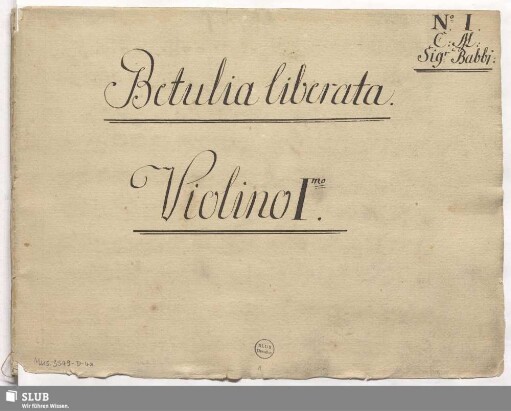 N.º I.
C: M:
Sigr Babbi:
Betulia liberata.
Violino Imo.
SLUB
Wir führen Wissen.